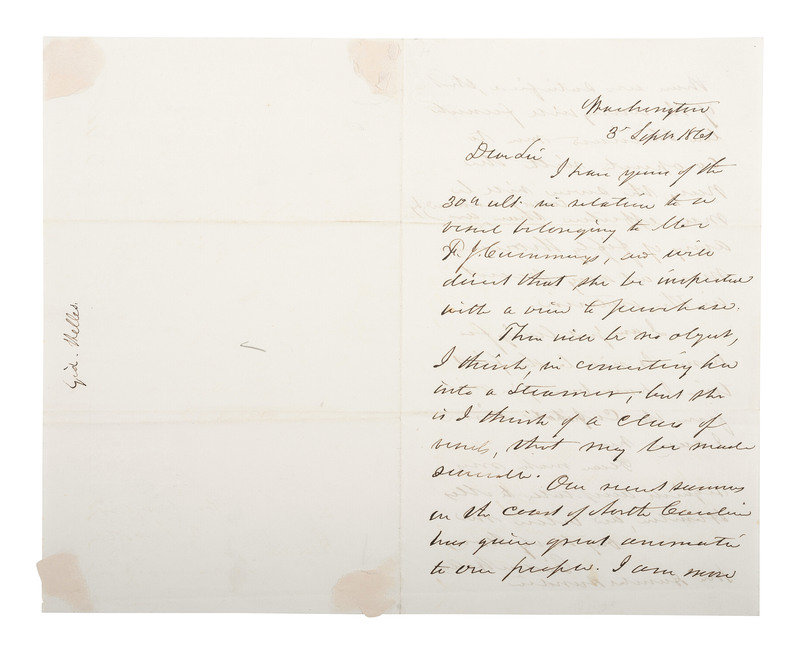 Gid. Welles.
Washington
3d Septr 1861
Dear Sir
I have yours of the
30th ult. in relation to a
vessel belonging to
F. J. Cummings, and will
direct that she be inspected
with a view to purchase.
There will be no object,
I think, in converting her
into a steamer, but she
is I think of a class of
vessels, that may be made
Our recent success
on the coast of North Carolina
has given great animation
to our people. I am more